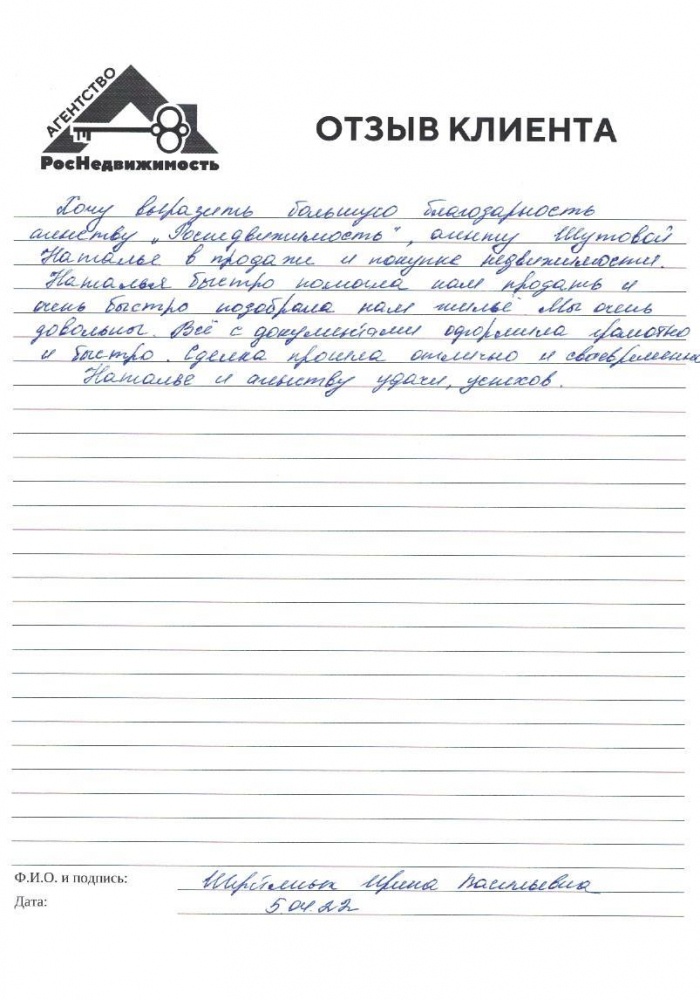 АГЕНТСТВО
РосНедвижимость
ОТЗЫВ КЛИЕНТА
Хочу выразить большую благодарность
агенству „Росне­движимость", агенту Шутовой
Наталье в продажи и покупке недвижимости.
Наталья быстро помогла нам продать и
очень быстро подобрала нам жильё. Мы очень
довольны. Всё с документами оформила грамотно
и быстро. Сделка прошла отлично и своевременно
Наталье и агенству удачи, успехов.
Ф.И.О. и подпись:
Ирина Васильевна
Дата:
5.04.22